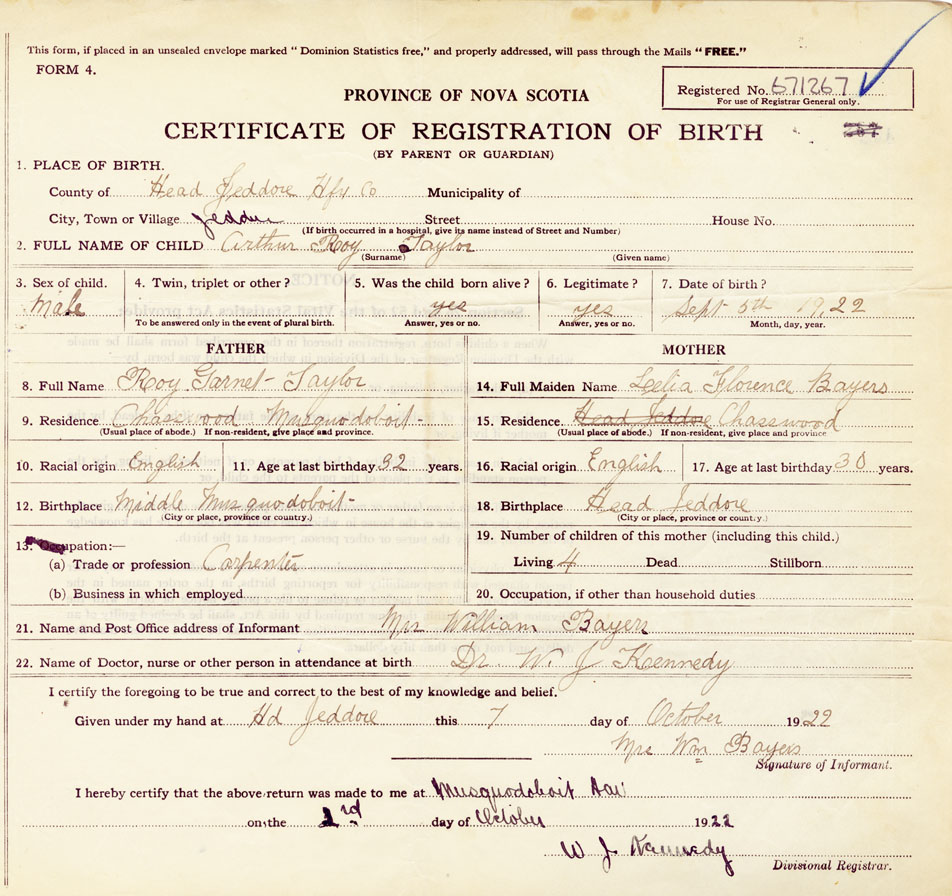 This form, if placed in an unsealed envelope marked "Dominion Statistics free," and properly addressed, will pass through the Mails "FREE."
FORM 4.
Registered No. 671267
For use of Registrar General only.
PROVINCE OF NOVA SCOTIA
CERTIFICATE OF REGISTRATION OF BIRTH
(BY PARENT OR GUARDIAN)
1. PLACE OF BIRTH.
County of Head Jeddore Hfx Co Municipality of
City, Town or Village Jeddore Street House No.
(If birth occurred in a hospital, give its name instead of Street and Number)
2. FULL NAME OF CHILD Arthur Roy Taylor
(Surname) (Given name)
3. Sex of child. 4. Twin, triplet or other? 5. Was the child born alive? 6. Legitimate? 7. Date of birth?
Male yes yes Sept 5th 1922
To be answered only in the event of plural birth. Answer, yes or no. Answer, yes or no. Month, day, year.
FATHER MOTHER
8. Full Name Roy Garnet Taylor 14. Full Maiden Name Lelia Florence Bayers
9. Residence Chaswood Musquodoboit 15. Residence Head Jeddore Chasswood
(Usual place of abode.) If non-resident, give place and province. (Usual place of abode.) If non-resident, give place and province
10. Racial origin English 11. Age at last birthday 32 years. 16. Racial origin English 17. Age at last birthday 30 years.
12. Birthplace Middle Musquodoboit 18. Birthplace Head Jeddore
(City or place, province or country.) (City or place, province or country.)
13. Occupation:— 19. Number of children of this mother (including this child.)
(a) Trade or profession Carpenter Living 4 Dead Stillborn
(b) Business in which employed 20. Occupation, if other than household duties
21. Name and Post Office address of Informant Mrs William Bayers
22. Name of Doctor, nurse or other person in attendance at birth Dr. W. J Kennedy
I certify the foregoing to be true and correct to the best of my knowledge and belief.
Given under my hand at Hd Jeddore this 7 day of October 1922
Mrs Wm Bayers
Signature of Informant.
I hereby certify that the above return was made to me at Musquodoboit Har
on the day of October 1922
W J Kennedy
Divisional Registrar.